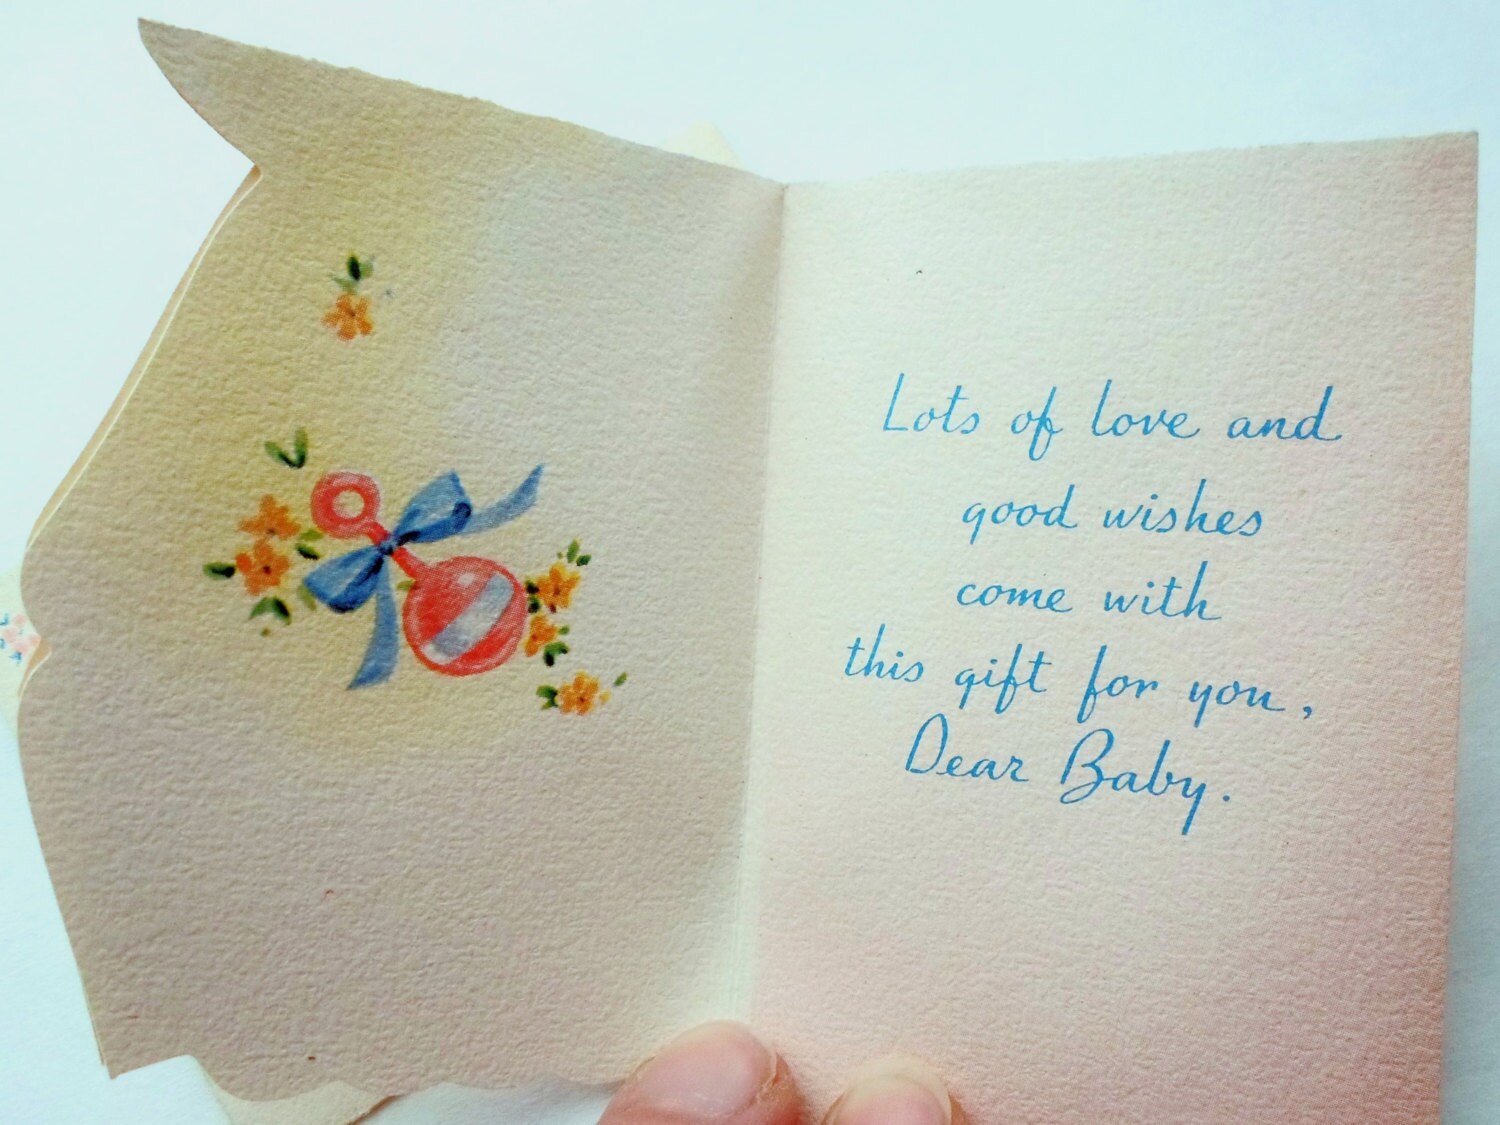 Lots of love and
good wishes
come with
this gift for you,
Dear Baby.